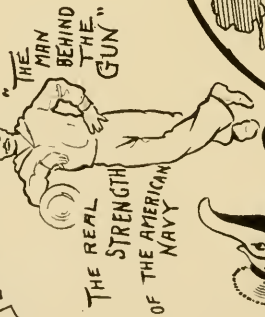 "THE
MAN
BEHIND
THE
GUN"
THE REAL
STRENGTH
OF THE AMERICAN
NAVY